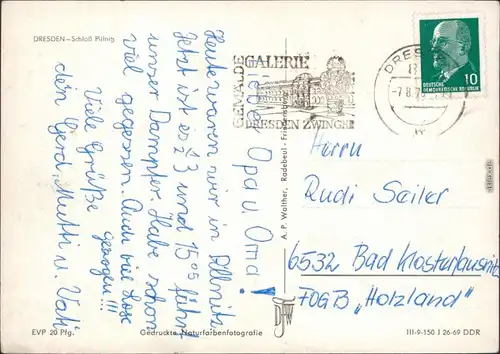 DRESDEN—Schloß Pillnitz
Liebe Opa u. Oma!
Heute waren wir in Pillnitz.
Jetzt ist es ½ 3 und 15⁰⁰ fährt
unser Dampfer. Habe schon
viel gegessen. Auch viel Lose
gezogen!!!
Viele Grüße
dein Gerd, Mutti u. Vati
GEMÄLDE
GALERIE
DRESDEN ZWINGER
DRES
-7.8.7
DEUTSCHE
DEMOKRATISCHE REPUBLIK
10
Herrn
Rudi Seiler
6532 Bad Klosterlausnitz
FDGB „Holzland"
A. P. Walther, Radebeul -
EVP 20 Pfg.
Gedruckte Naturfarbenfotografie
III-9-150 J 26-69 DDR